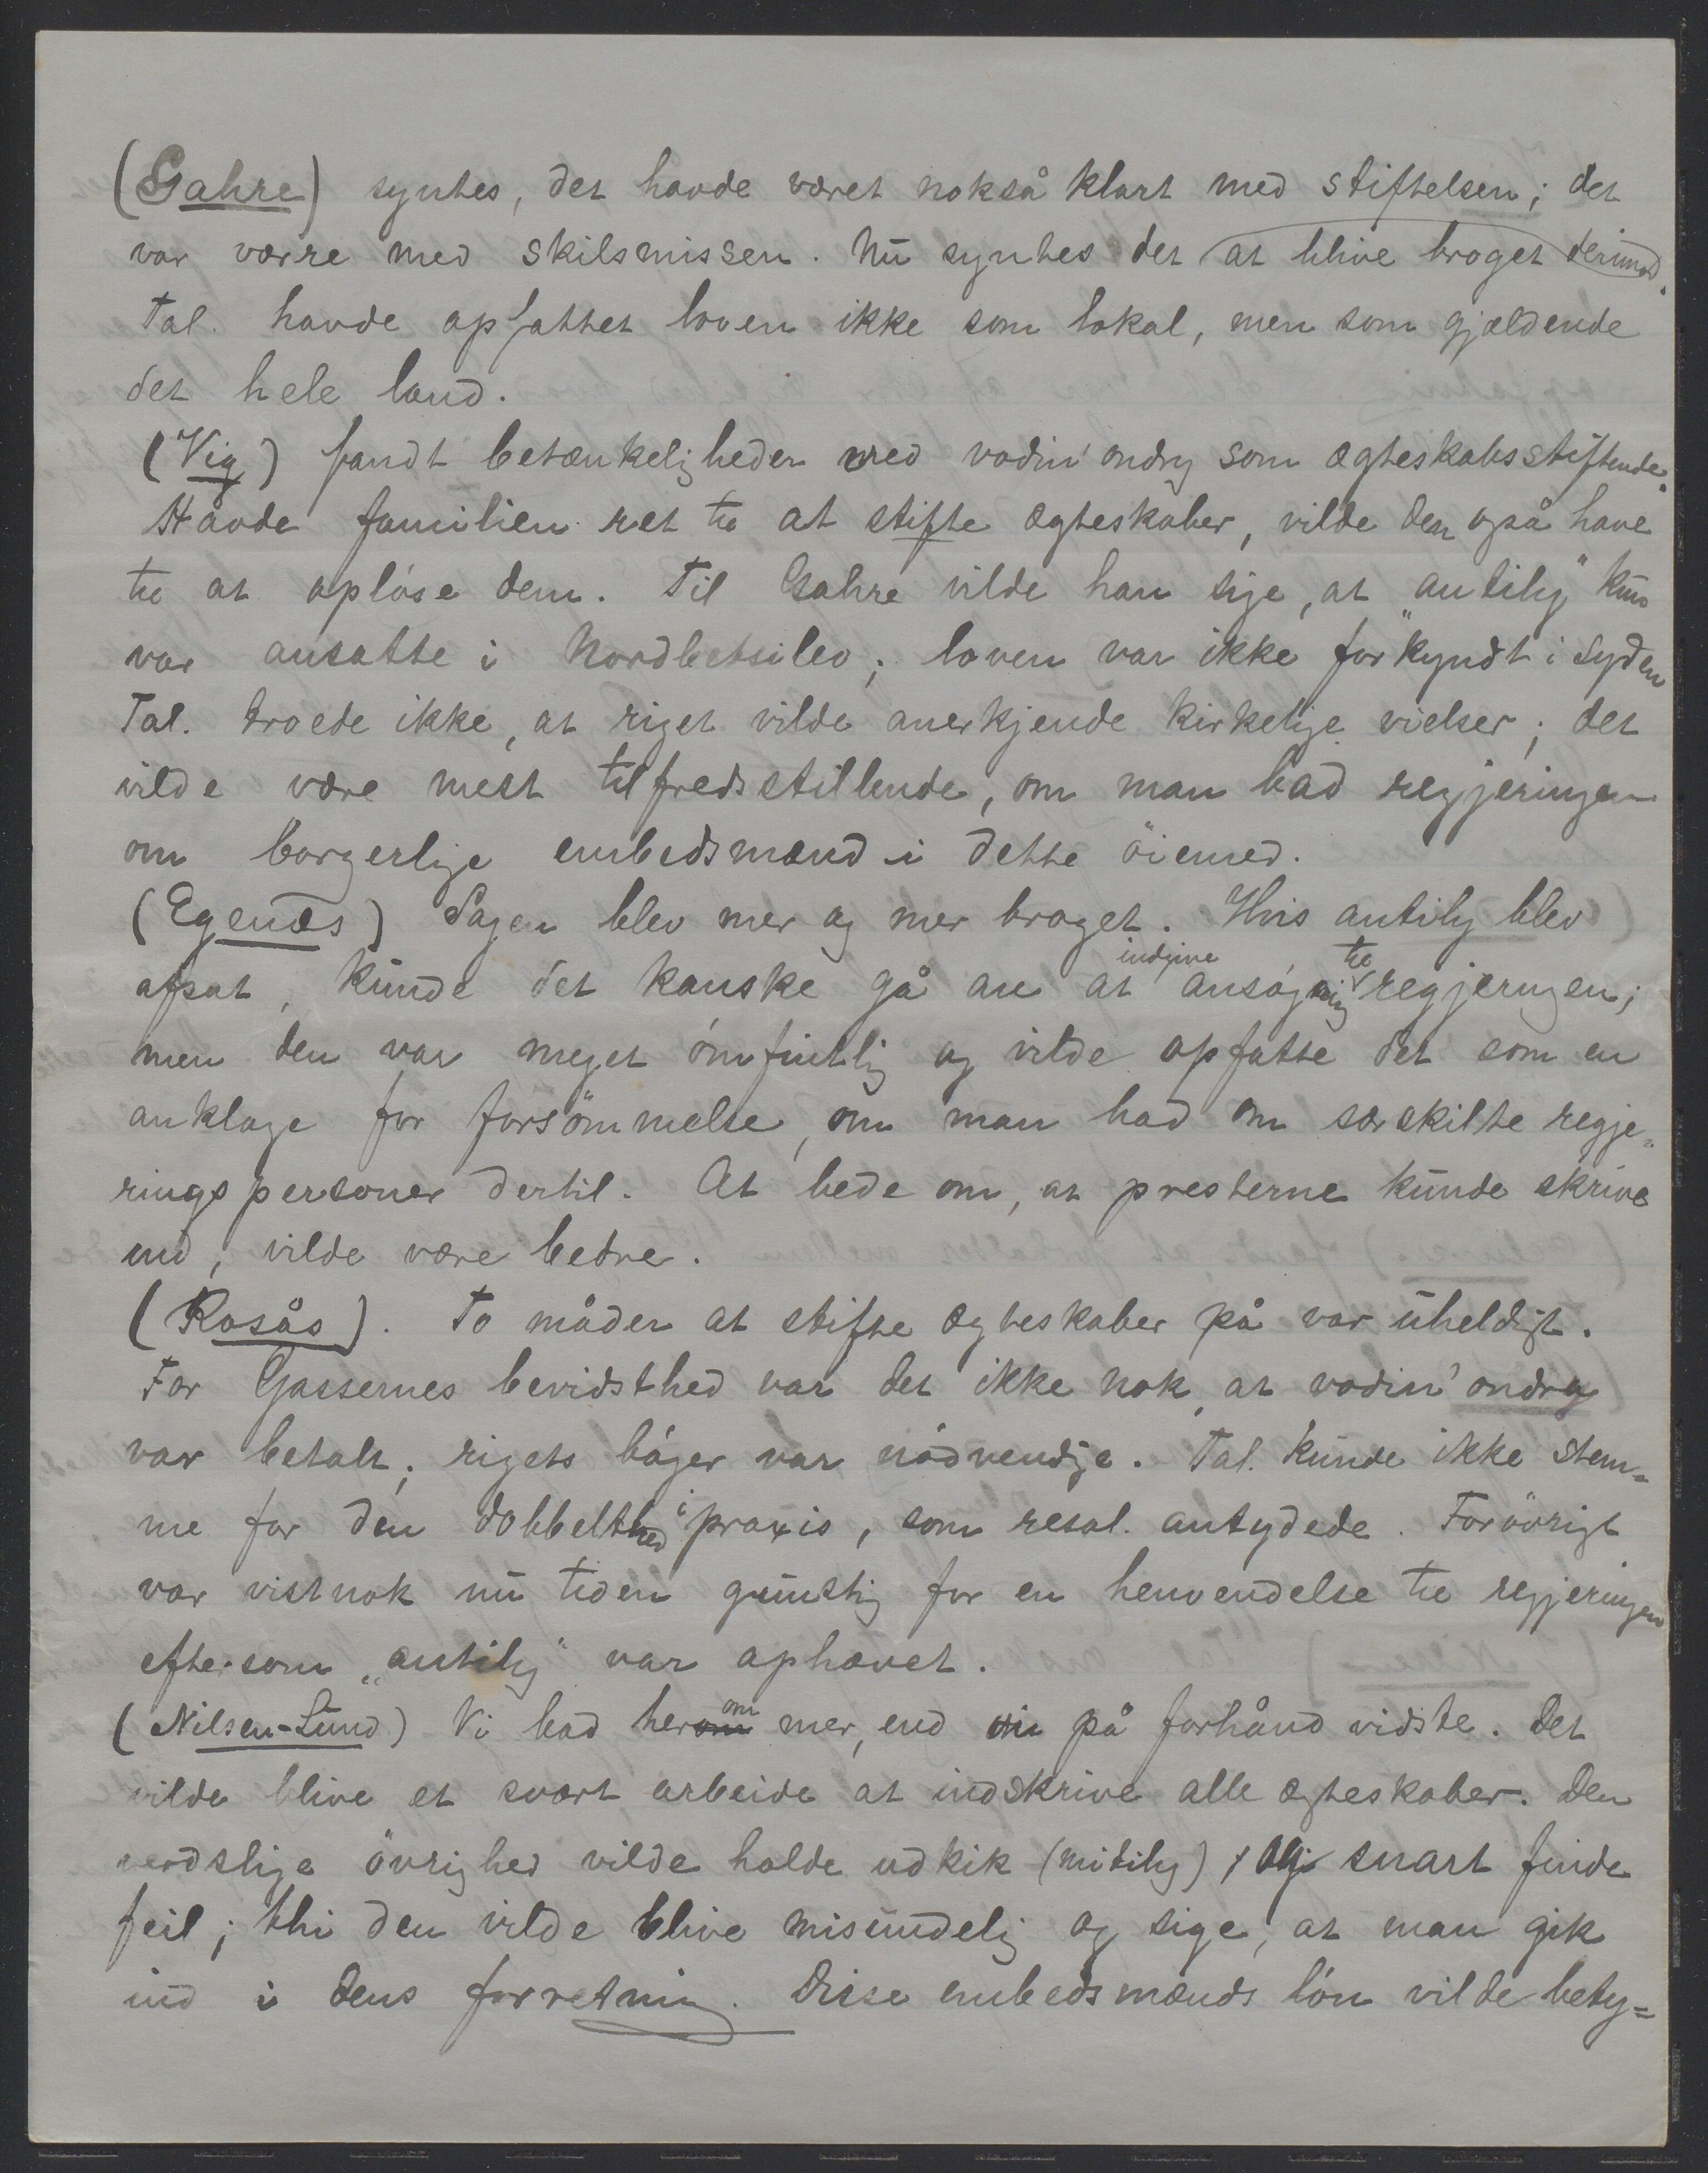 (Gahre) syntes, det havde været nokså klart med stiftelsen; det
var værre med skilsmissen. Nu syntes det at blive broget derimod.
Tal. havde opfattet loven ikke som lokal, men som gjældende
det hele land.
(Vig) fandt betænkeligheder ved vodin' ondry som ægteskabsstiftende.
Havde familien ret til at stifte ægteskaber, vilde den også have
til at opløse dem. Til Gahre vilde han sige, at "antily" kun
var ansatte i Nordbetsileo; loven var ikke forkyndt i syden
Tal. troede ikke, at riget vilde anerkjende kirkelige vielser; det
vilde være mest tilfredsstillende, om man bad regjeringen
om borgerlige embedsmænd i dette öiemed.
(Egenæs) Sagen blev mer og mer broget. Hvis antily blev
afsat, kunde det kanske gå an at indgive ansøgning til regjeringen;
men den var meget ömfintlig og vilde opfatte det som en
anklage for forsömmelse, om man bad om særskilte regje-
ringspersoner dertil. At bede om, at presterne kunde skrive
ind, vilde være bedre.
(Rosås). To måder at stifte ægteskaber på var uheldigt.
For Gassernes bevidsthed var det ikke nok, at vodin' ondry
var betalt; rigets bøger var nödvendige. Tal. kunde ikke stem-
me for den dobbelthed i praxis, som resol. antydede. Forövrigt
var vistnok nu tiden gunstig for en henvendelse til regjeringen
eftersom "antily" var ophævet.
(Nilsen-Lund) Vi bad herom mer, end vi på forhånd vidste. Det
vilde blive et svært arbeide at indskrive alle ægteskaber. Den
verdslige övrighed vilde holde udkik (mitily) og snart finde
feil; thi den vilde blive misundelig og sige, at man gik
ind i dens forretning. Disse embedsmænds lön vilde bety-